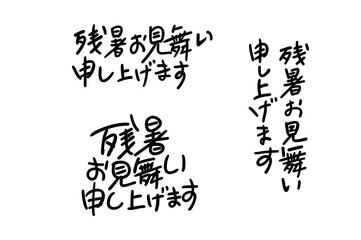 残暑お見舞い
申し上げます
残暑
お見舞い
申し上げます
残暑お見舞い
申し上げます